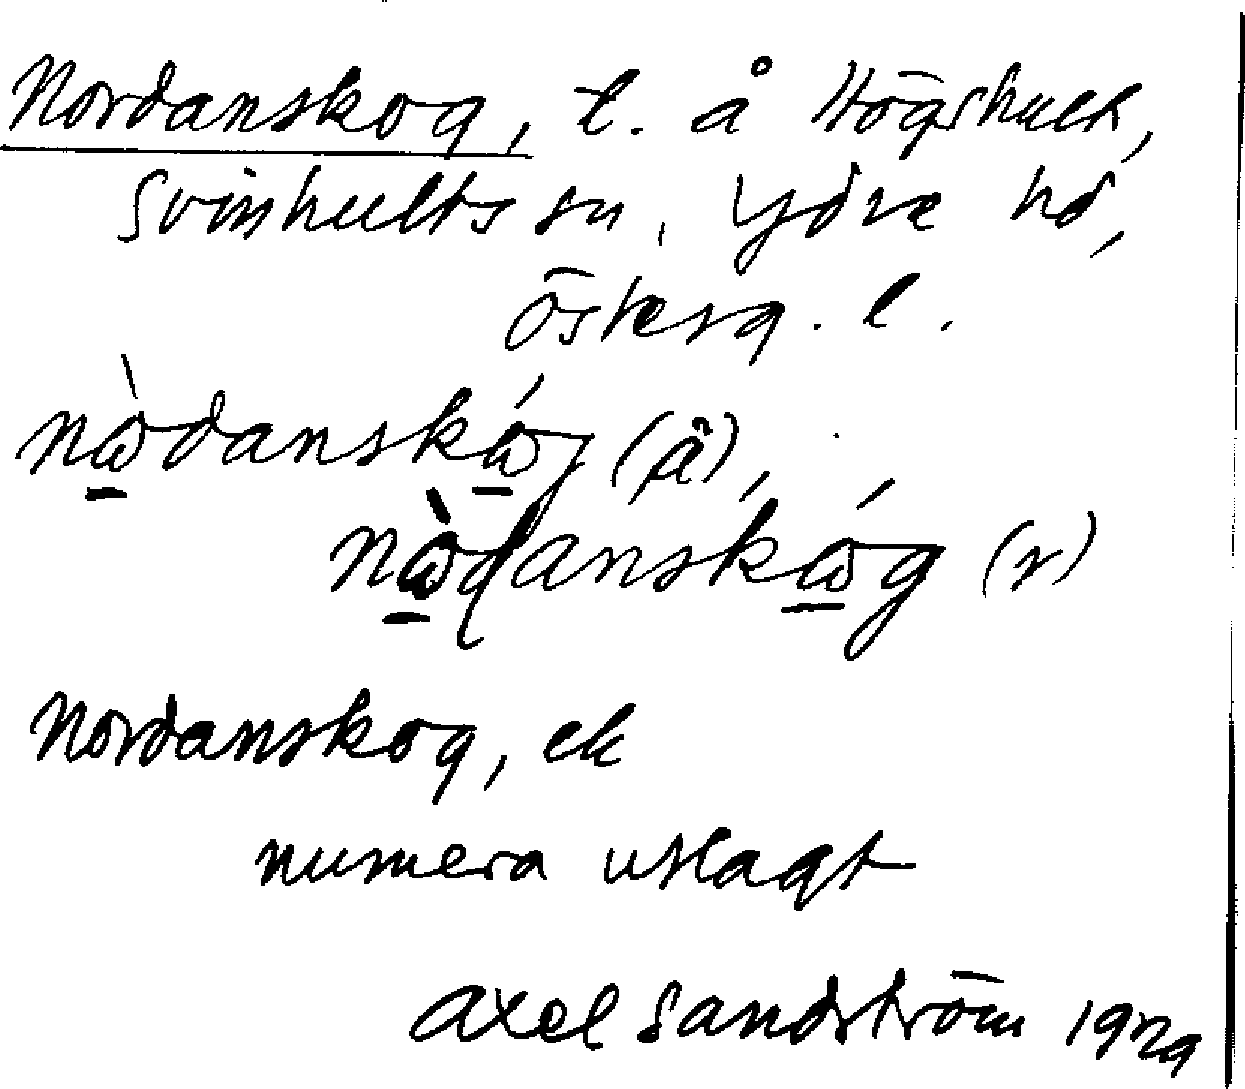 Nordanskog, t. å Högshult,
Svinhults sn, Ydre hd,
Österg. l.
nɷ̀danskɷ́g (ä),
nɷ̀danskɷ́g (r)
Nordanskog, ek
numera utlagt
Axel Sandström 1929